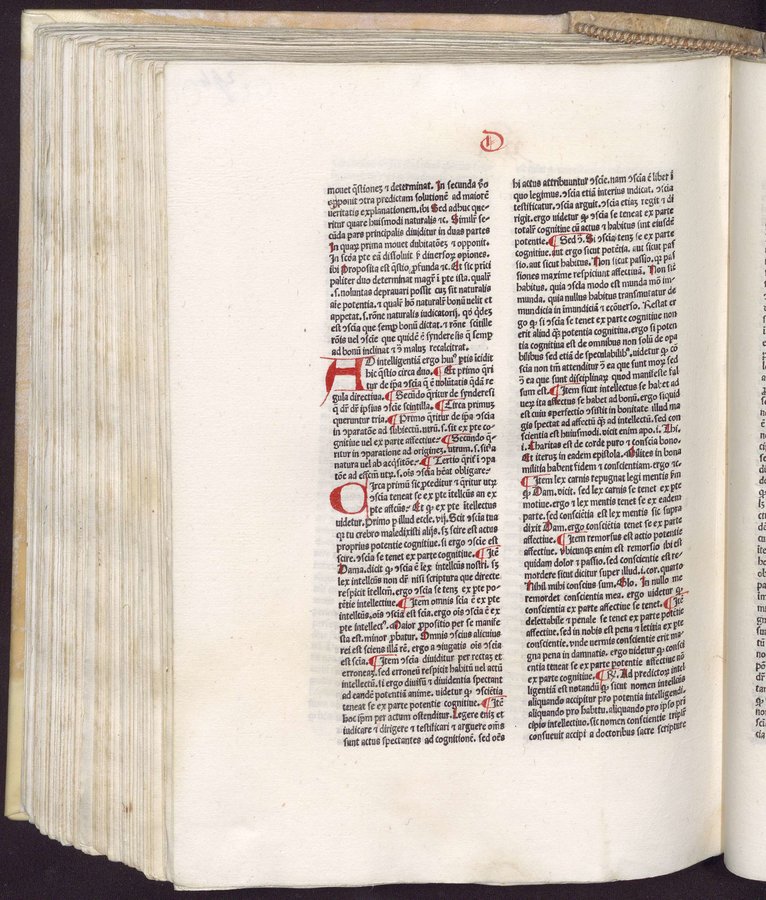 D
mouet q̄stiones ⁊ determinat. In secunda v̊o
opponit ɔtra predictam solutionē ad maiorē
veritatis explanationem. ibi Sed adhuc que⸗
ritur quare huiusmodi naturalis ⁊c. Similr̄ se⸗
cūda pars principalis diuiditur in duas partes
In quaꝝ prima mouet dubitatōes ⁊ opponit.
In scd̄a ꝑte eā dissoluit ꝑ diuersoꝝ opiones.
ibi Proposita est q̄stio ꝓfunda ⁊c. Et sic
paliter duo determinat magr̄ ī ꝑte ista. qualr̄
.s. noluntas deprauari possit cuꝫ sit naturalis
aīe potentia. ⁊ qualr̄ hō naturalr̄ bonū velit et
appetat. s. rōne naturalis iudicatorij.
est ɔscīa que semꝑ bonū dictat. ⁊ rōne scītille
rōis uel ɔscīe que quidē ē synderesis q̄ semꝑ
ad bonū inclinat ⁊ ɔ malum recalcitrat.
AD intelligentiā ergo huiꝰ ꝑtis īcidit
hic q̄stio circa duo. Et primo q̄ri
tur de ip̄a ɔscīa q̄ ē uolūtatis q̄dā re
gula directiua. Secūdo q̄ritur de synderesi
q̄ dr̄ dr̄ ipsius ɔscīe scintilla. Circa primuꝫ
queruntur tria. Primo q̄ritur de ip̄a ɔscīa
in ɔparatōne ad subiectū. utrū. s. sit ex ꝑte co⸗
gnitiue uel ex parte affectiue. Secundo q̄⸗
ritur in ɔparatione ad originē. utrum. s. sit a
natura uel ab acq̄sitōe. Tertio q̄rit̄ ī ɔpa
tōe ad effectū utꝝ. s. ois ɔscīa hēat obligare.
Circa primū sic ꝓceditur ⁊ q̄ritur utꝝ
ɔscīa teneat se ex ꝑte ītellcūs an ex
ꝑte affcūs. Et ꝙ ex ꝑte intellectus
uidetur. Primo ꝑ illud eccle. vij. Scit ɔscīa tua
qꝛ tu crebro maledixisti alijs. sꝫ scire est actus
proprius potentie cognitiue. si ergo ɔscīe est
scire. ɔscīa se tenet ex parte cognitiue. Itē
Dama. dicit ꝙ ɔscīa ē lex intellcūs nostri. sꝫ
lex intellcūs non dr̄ nisi scriptura que directe
respicit ītellcm̄. ergo ɔscīa se tenꝫ ex ꝑte po⸗
tētie intellectiue. Item omnis scīa ē ex ꝑte
intellcūs. ois ɔscīa est scīa. ergo ois ɔscīa ē ex
ꝑte intellectꝰ. Maior ꝓpositio per se manife
sta est. minor ꝓbatur. Omnis ɔscius alicuius
rei est sciens illā rē. ergo a ɔiugatis ois ɔscīa
est scīa. Item ɔscīa diuiditur per rectaꝫ et
erroneaꝫ. sed erroneū respicit habitū uel actū
intellectū. si ergo diuisū ⁊ diuidentia spectant
ad eandē potentiā anime. videtur ꝙ ɔsciētia
teneat se ex parte potentie cognitiue. Itē
hoc ip̄m per actum ostenditur. Legere enīꝫ et
iudicare ⁊ dirigere ⁊ testificari ⁊ arguere oīns
sunt actus spectantes ad cognitionē. sed oēs
hi actus attribuuntur ɔscīe. nam ɔscīa ē liber ī
quo legimus. ɔscīa etiā interius iudicat. ɔscīa
testificatur. ɔscīa arguit. ɔscīa etiaꝫ regit ⁊ di
rigit. ergo uidetur ꝙ ɔscīa se teneat ex parte
totalr̄ cognitiue cū actus ⁊ habitus sint eiusdē
potentie. Sed ɔ. Si ɔscīa tenꝫ se ex parte
cognitiue. aut ergo sicut potētia. aut sicut pas
sio. aut sicut habitus. Non sicut passio. qꝛ pas
siones maxime respiciunt affectiuā. Non sic̄
habitus. quia ɔscīa modo est munda mō im⸗
munda. quia nullus habitus transmutatur de
mundicia in īmundiciā ⁊ ecōuerso. Restat er
go ꝙ si ɔscīa se tenet ex parte cognitiue non
erit aliud q̄ꝫ potentia cognitiua. ergo si poten
tia cognitiua est de omnibus non solū de opa
bilibus sed etiā de speculabilibꝰ. uidetur ꝙ cō
scīa non tm̄ attenditur ɔ ea que sunt moꝝ. sed
ɔ ea que sunt disciplinaꝝ quod manifeste fal
sum est. Item sicut intellectus se habet ad
ueꝝ ita affectus se habet ad bonū. ergo siquid
est cuiꝰ ɔperfectio ɔsistit in bonitate illud ma
gis spectat ad affectū q̄ꝫ ad intellectū. sed con
scientia est huiusmodi. vicit enim apo. i. Thi.
i. Charitas est de corde puro ⁊ conscīa bono.
Et iteruꝫ in eadem epistola. Milites in bona
militia habent fidem ⁊ conscientiam. ergo ⁊c.
Item lex carnis repugnat legi mentis s̄m
ꝙ Dam. vicit. sed lex carnis se tenet ex pte
motiue. ergo ⁊ lex mentis tenet se ex eadem
parte. sed consciētia est lex mentis sic supra
dixit Dam. ergo conscientia tenet se ex parte
affectiue. Item remorsus est actio potentie
affectiue. vbicunqꝫ enim est remorsio ibi est
quidam dolor ⁊ passio. sed conscientie est re⸗
mordere sicut dicitur super illud. i. cor. quarto
Nihil mihi conscius sum. Glo. In nullo me
remordet conscientia mea. ergo uidetur ꝙ
conscientia ex parte affectiue se tenet. Itē
delectabile ⁊ penale se tenet ex parte potentie
affectiue. sed in nobis est pena ⁊ letitia ex ꝑte
conscientie. vnde uermis conscientie erit ma⸗
gna pena in damnatis. ergo uidetur ꝙ consci
entia teneat se ex parte potentie affectiue nō
ex parte cognitiue. R̄. Ad predictoꝝ intel
ligentiā est notandū ꝙ sicut nomen intellcūs
aliquando accipitur pro potentia intelligendi.
aliquando pro habitu. aliquando pro ipso pri
cipio intellectiuo. sic nomen conscientie triplr̄
consueuit accipi a doctoribus sacre scripture